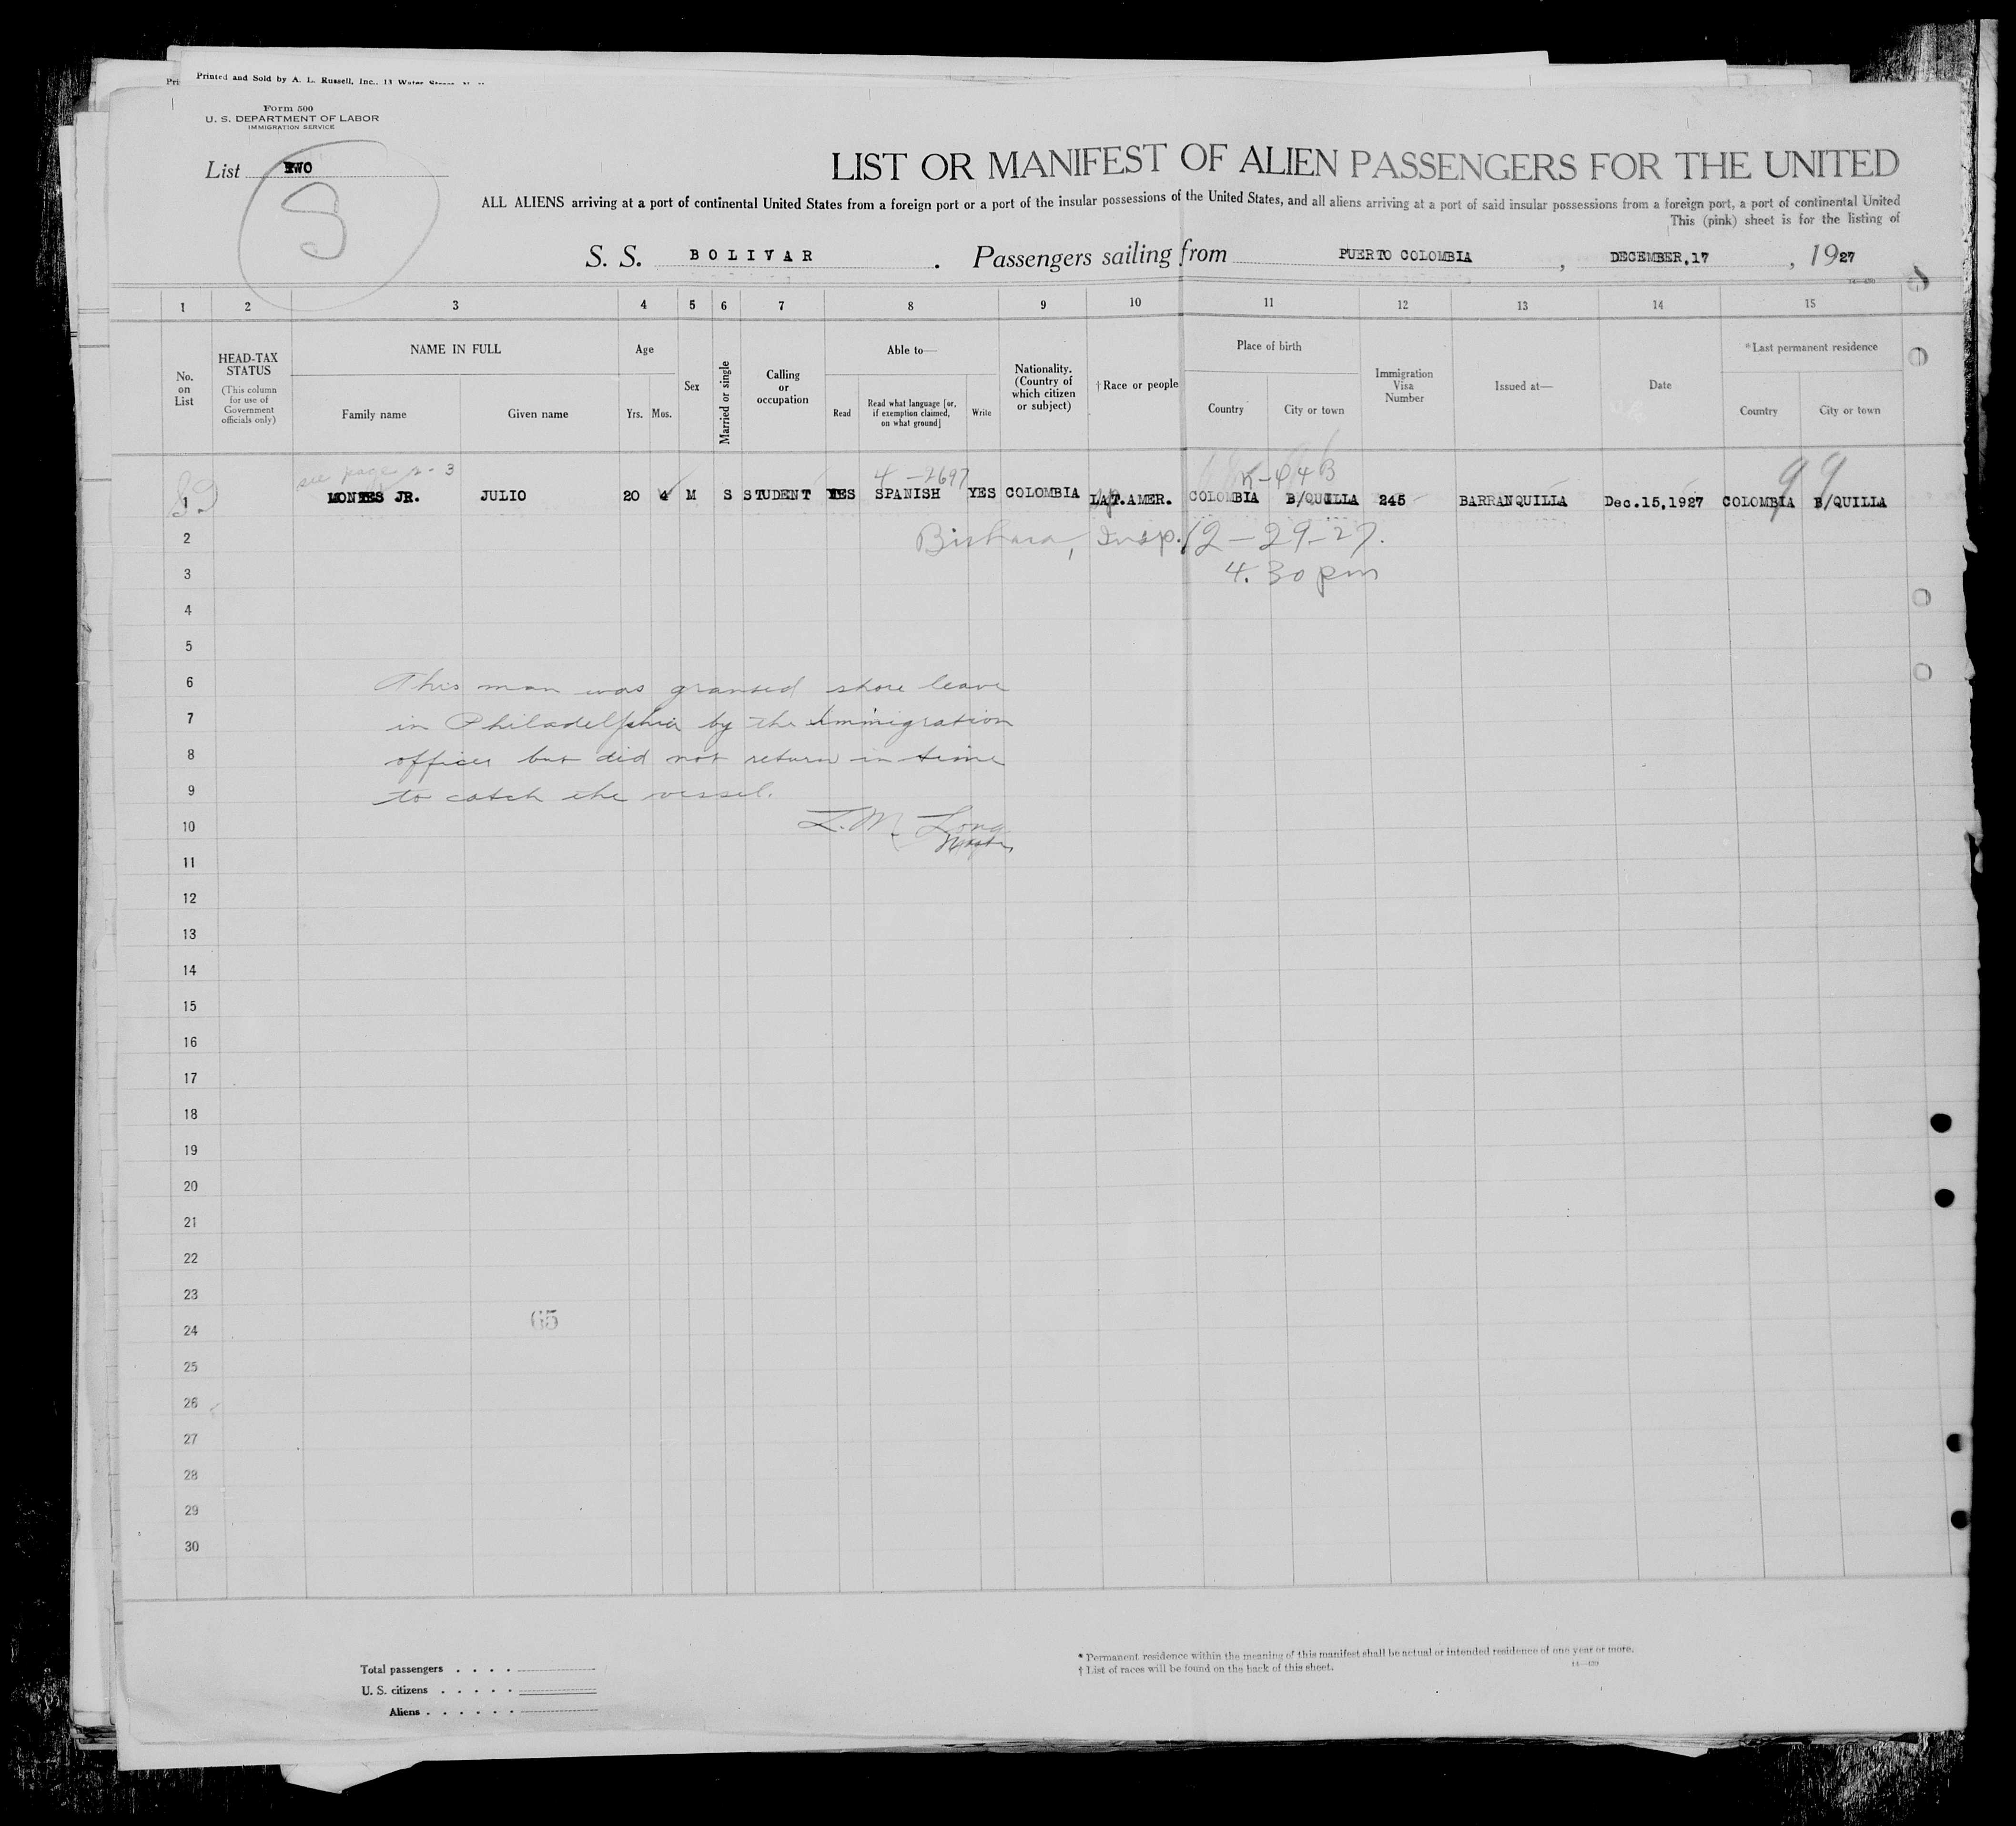 Printed and Sold by A. L. Russell, Inc., 13 Water
Form 500
U. S. DEPARTMENT OF LABOR
IMMIGRATION SERVICE
List TWO
S
LIST OR MANIFEST OF ALIEN PASSENGERS FOR THE UNITED
ALL ALIENS arriving at a port of continental United States from a foreign port or a port of the insular possessions of the United States, and all aliens arriving at a port of said insular possessions from a foreign port, a port of continental United
This (pink) sheet is for the listing of
S. S. BOLIVAR . Passengers sailing from PUERTO COLOMBIA , DECEMBER,17 , 1927
1 2 3 4 5 6 7 8 9 10 11 12 13 14 15
No. on List
HEAD-TAX STATUS
(This column for use of Government officials only)
NAME IN FULL
Family name
Given name
Age
Yrs. Mos.
Sex
Married or single
Calling or occupation
Able to—
Read
Read what language [or, if exemption claimed, on what ground]
Write
Nationality. (Country of which citizen or subject)
†Race or people
Place of birth
Country
City or town
Immigration Visa Number
Issued at—
Date
*Last permanent residence
Country
City or town
see page 2-3
4-2697
99
1 MONTES JR. JULIO 20 4 M S STUDENT YES SPANISH YES COLOMBIA LAT.AMER. COLOMBIA B/QUILLA 245 BARRANQUILLA Dec.15,1927 COLOMBIA B/QUILLA
2 Insp. 12-29-27.
3 4.30 pm
4
5
6 This man was granted shore leave
7 in Philadelphia by the Immigration
8 officer but did not return in time
9 to catch the vessel.
10 L. M. Long
Master
11
12
13
14
15
16
17
18
19
20
21
22
23
65
24
25
26
27
28
29
30
Total passengers . . . .
U. S. citizens . . . . .
Aliens . . . . . .
* Permanent residence within the meaning of this manifest shall be actual or intended residence of one year or more.
† List of races will be found on the back of this sheet.
14—430